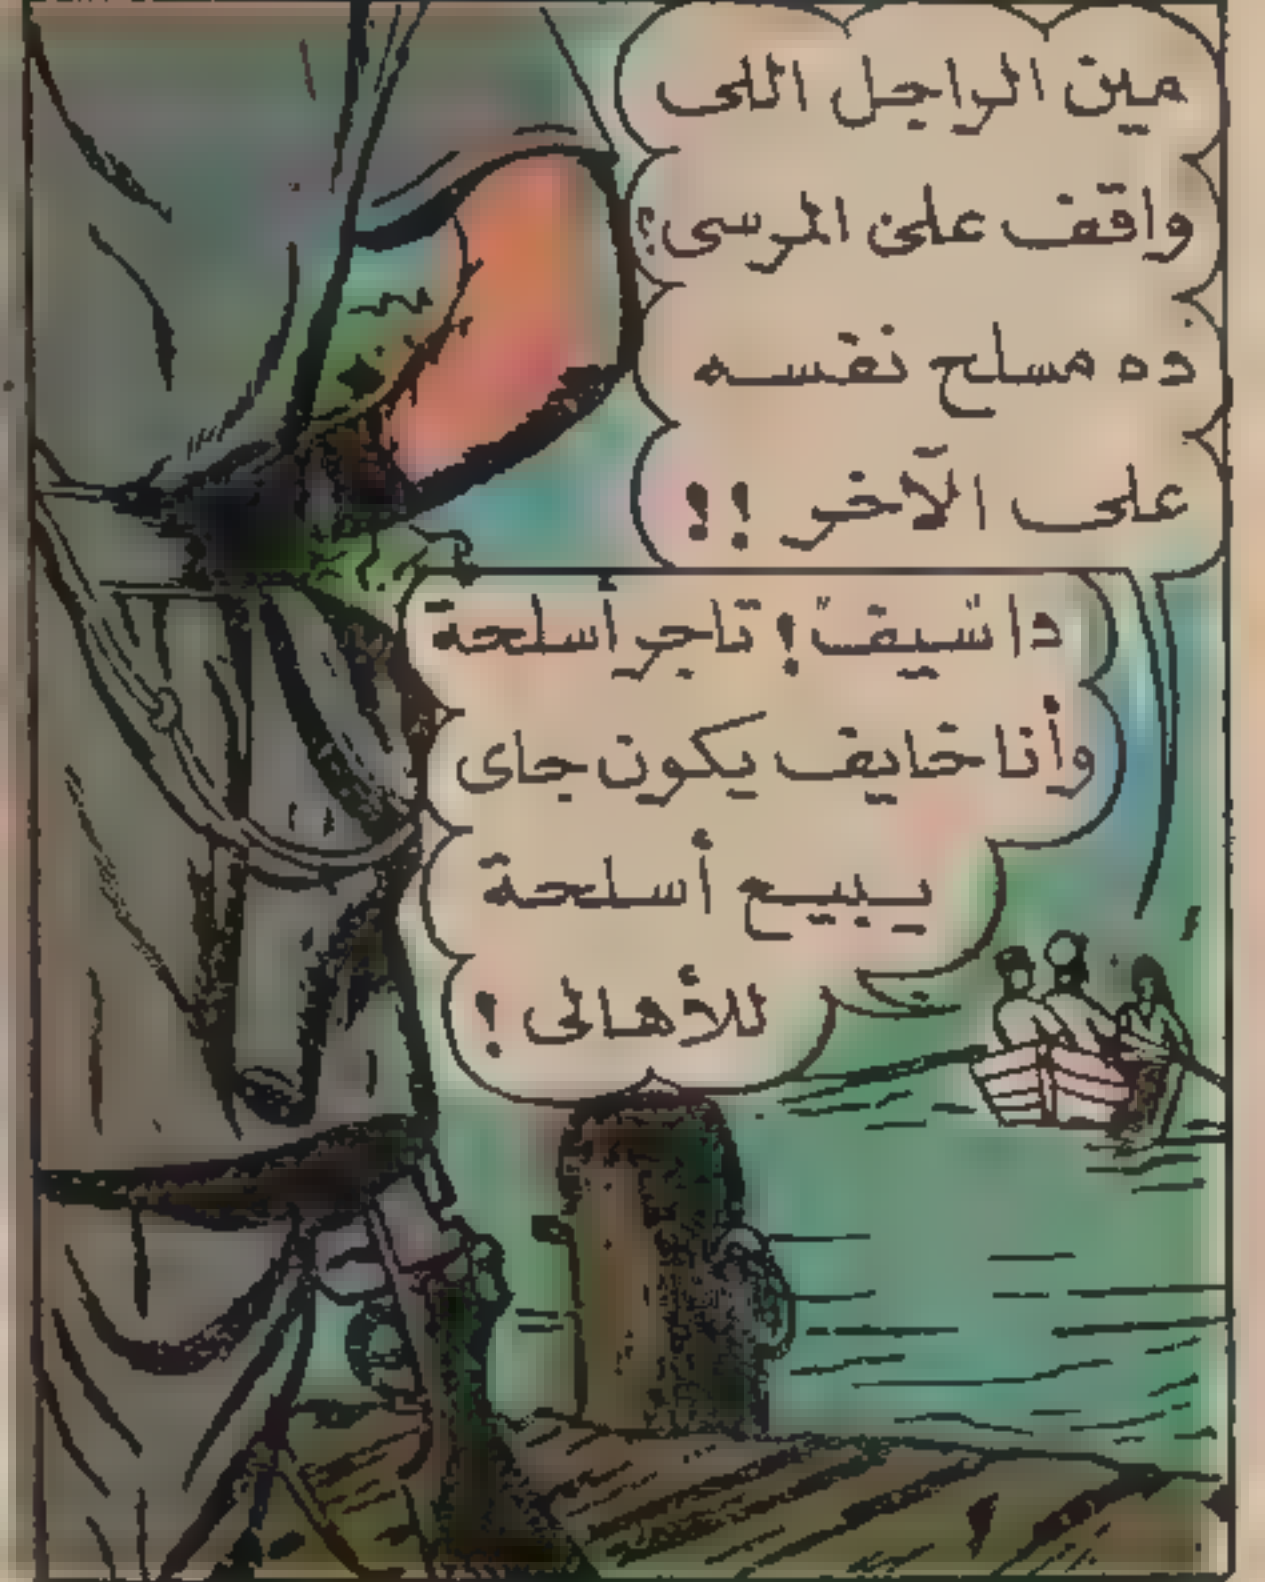 مين الراجل اللى
واقف على المرسى؟
ده مسلح نفسه
على الآخر !!
دا "شيف" ! تاجر أسلحة
وأنا خايف يكون جاى
يبيع أسلحة
للأهالى !